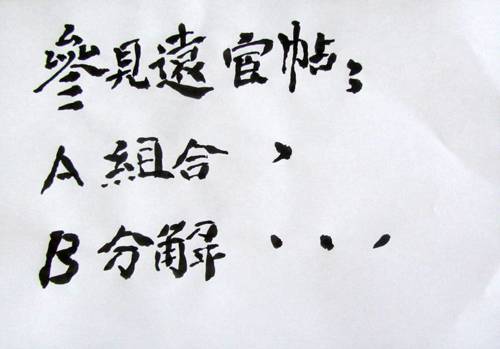 參見遠宦帖：
A 組合 、
B 分解 ・・・